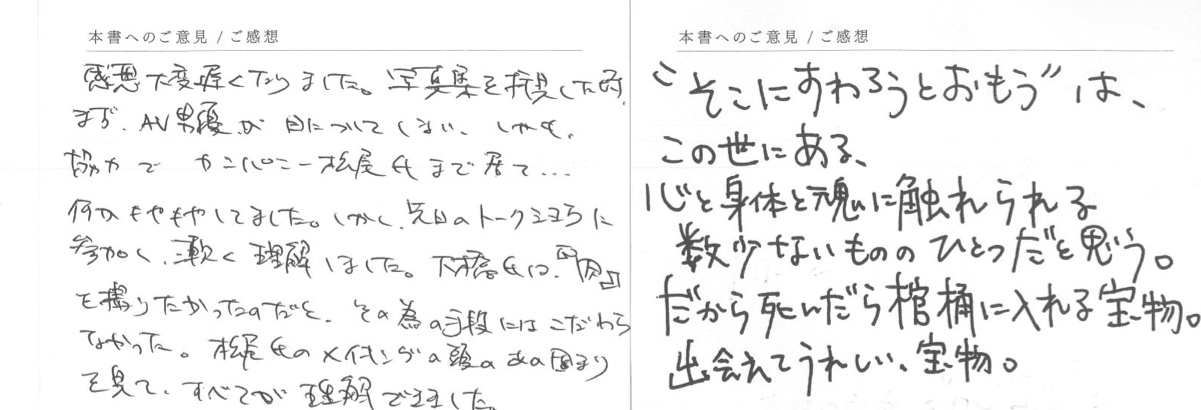 本書へのご意見 / ご感想
感想大変遅くなりました。写真集を拝見した時、
まず、AV男優が目についてしまい、しかも、
協力で カンパニー松尾氏まで居て…
何かもやもやしてました。しかし、先日のトークショウに
参加し、漸く理解しました。大橋氏は、『肉』
を撮りたかったのだと、その為の手段にはこだわら
なかった。松尾氏のメイキングの頭のあの固まり
を見て、すべてが理解できました。
本書へのご意見 / ご感想
“そこにすわろうとおもう”は、
この世にある、
心と身体と魂に触れられる
数少ないもののひとつだと思う。
だから死んだら棺桶に入れる宝物。
出会えてうれしい、宝物。